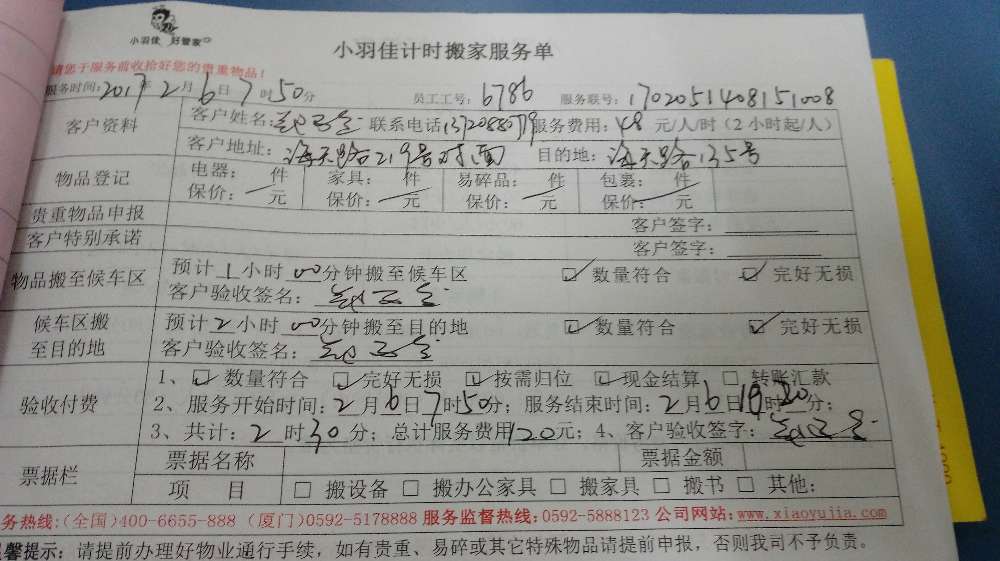 小羽佳 好管家
小羽佳计时搬家服务单
请您于服务前收拾好您的贵重物品！
服务时间：2017年2月6日7时50分 员工工号：6786 服务联号：1702051408151008
客户资料 客户姓名： 联系电话 服务费用：48元/人/时（2小时起/人）
客户地址：海天路219号对面 目的地：海天路135号
物品登记 电器： 件 家具： 件 易碎品： 件 包裹： 件
保价： 元 保价： 元 保价： 元 保价： 元
贵重物品申报 客户签字：
客户特别承诺 客户签字：
物品搬至候车区 预计1小时00分钟搬至候车区 ☑ 数量符合 ☑ 完好无损
客户验收签名：
候车区搬至目的地 预计2小时00分钟搬至目的地 ☑ 数量符合 ☑ 完好无损
客户验收签名：
验收付费 1、☑ 数量符合 ☑ 完好无损 ☑ 按需归位 ☑ 现金结算 □ 转账汇款
2、服务开始时间：2月6日7时50分；服务结束时间：2月6日10时20分；
3、共计：2时30分；总计服务费用120元；4、客户验收签字：
票据栏 票据名称 票据金额
项 目 □ 搬设备 □ 搬办公家具 □ 搬家具 □ 搬书 □ 其他：
务热线：（全国）400-6655-888 （厦门）0592-5178888 服务监督热线：0592-5888123 公司网站：www.xiaoyujia.com
馨提示：请提前办理好物业通行手续，如有贵重、易碎或其它特殊物品请提前申报，否则我司不予负责。